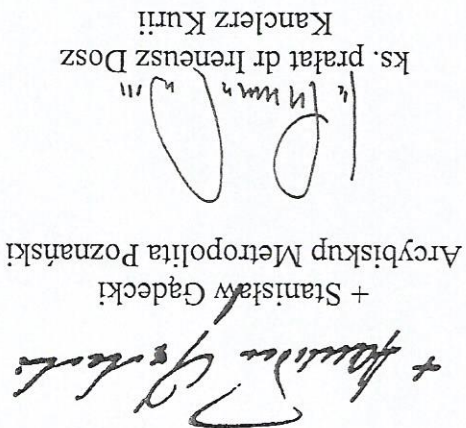 + Stanisław Gądecki
+ Stanisław Gądecki
Arcybiskup Metropolita Poznański
ks. prałat dr Ireneusz Dosz
Kanclerz Kurii